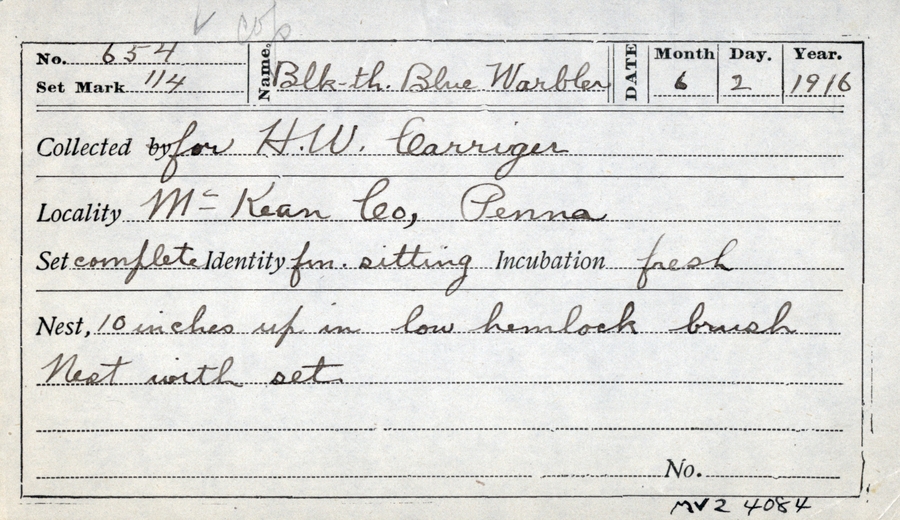 ✓ cop
No. 654 Name. Blk-th. Blue Warbler DATE Month Day. Year.
Set Mark 114 6 2 1916
Collected by for H.W. Carriger
Locality Mc Kean Co, Penna
Set complete Identity fm. sitting Incubation fresh
Nest, 10 inches up in low hemlock brush
Nest with set
No.
MVZ 4084